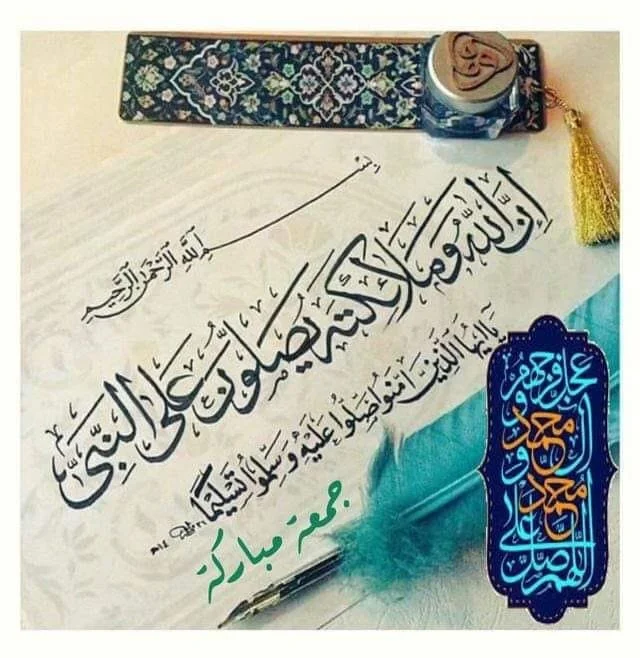 بسم الله الرحمن الرحيم
إن الله وملائكته يصلون على النبي
يا أيها الذين آمنوا صلوا عليه وسلموا تسليما
جمعة مباركة
اللهم صل على محمد وآل محمد وعجل فرجهم